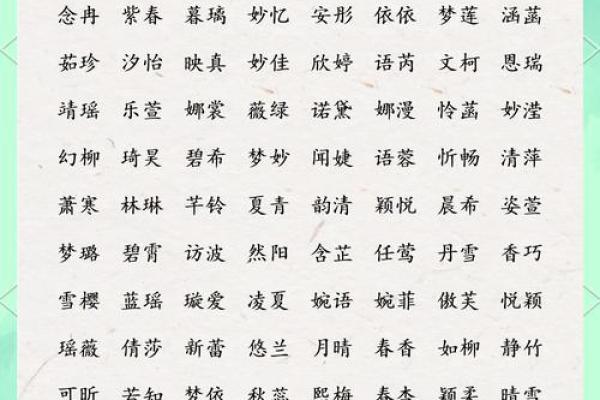 念冉 紫春 暮璃 妙忆 安彤 依依 梦莲 涵菡
茹珍 汐怡 映真 妙佳 欣婷 语芮 文柯 恩瑞
靖瑶 乐萱 娜裳 薇绿 诺黛 娜漫 怜菡 妙滢
幻柳 琦昊 碧希 梦妙 闻婕 语蓉 忻畅 清萍
萧寒 林琳 芊铃 夏青 韵清 颖悦 晨希 姿萱
梦璐 碧霄 访波 然阳 含芷 任莺 丹雪 香巧
雪樱 蓝瑶 璇爱 凌夏 婉语 婉菲 傲芙 悦颖
瑶薇 倩莎 新蕾 悠兰 月晴 春香 如柳 静竹
可昕 若知 梦依 秋蕊 熙梅 春杏 颖柔 晴雪